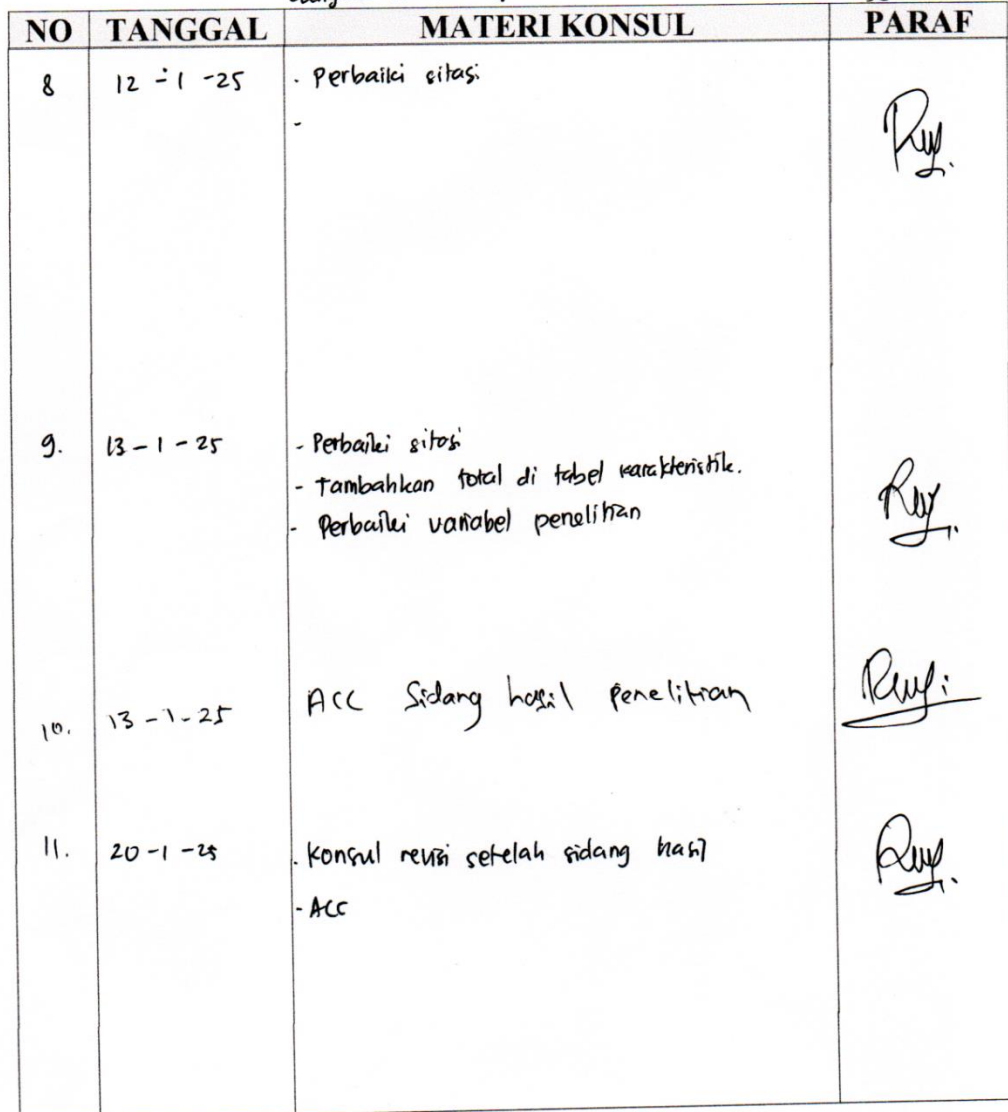 NO TANGGAL MATERI KONSUL PARAF
8 12 - 1 - 25 - Perbaiki sitasi
-
9. 13 - 1 - 25 - Perbaiki sitasi
- Tambahkan total di tabel karakteristik.
- Perbaiki variabel penelitian
10. 13 - 1 - 25 ACC Sidang hasil penelitian
11. 20 - 1 - 25 - Konsul revisi setelah sidang hasil
- ACC